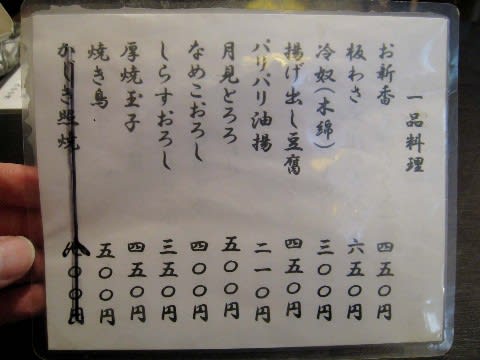 一品料理
お新香 四五〇円
板わさ 六五〇円
冷奴(木綿) 三〇〇円
揚げ出し豆腐 四五〇円
パリパリ油揚 二一〇円
月見とろろ 五〇〇円
なめこおろし 四〇〇円
しらすおろし 三五〇円
厚焼玉子 四五〇円
焼き鳥 五〇〇円
かじき照焼 〇〇円